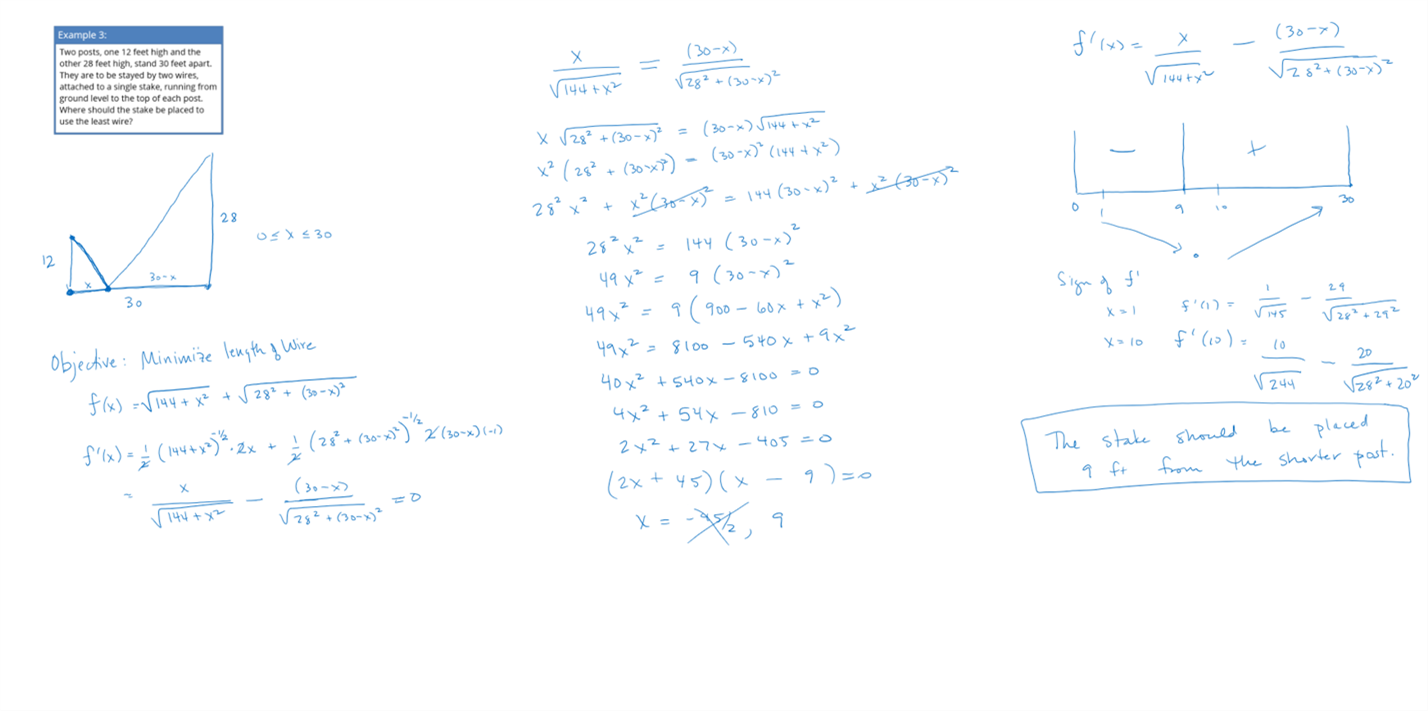 Example 3:
Two posts, one 12 feet high and the
other 28 feet high, stand 30 feet apart.
They are to be stayed by two wires,
attached to a single stake, running from
ground level to the top of each post.
Where should the stake be placed to
use the least wire?
12
28
x
30-x
30
0 ≤ x ≤ 30
Objective: Minimize length of wire
f(x) = √(144 + x²) + √(28² + (30-x)²)
f'(x) = 1/2 (144+x²)^(-1/2) · 2x + 1/2 (28² + (30-x)²)^(-1/2) 2(30-x)(-1)
= x/√(144+x²) - (30-x)/√(28² + (30-x)²) = 0
x/√(144+x²) = (30-x)/√(28² + (30-x)²)
x √(28² + (30-x)²) = (30-x) √(144 + x²)
x² (28² + (30-x)²) = (30-x)² (144 + x²)
28² x² + x² (30-x)² = 144 (30-x)² + x² (30-x)²
28² x² = 144 (30-x)²
49x² = 9 (30-x)²
49x² = 9 (900 - 60x + x²)
49x² = 8100 - 540x + 9x²
40x² + 540x - 8100 = 0
4x² + 54x - 810 = 0
2x² + 27x - 405 = 0
(2x + 45)(x - 9) = 0
x = -45/2, 9
f'(x) = x/√(144+x²) - (30-x)/√(28² + (30-x)²)
- +
0 1 9 10 30
Sign of f'
x = 1 f'(1) = 1/√145 - 29/√(28² + 29²)
x = 10 f'(10) = 10/√244 - 20/√(28² + 20²)
The stake should be placed
9 ft from the shorter post.